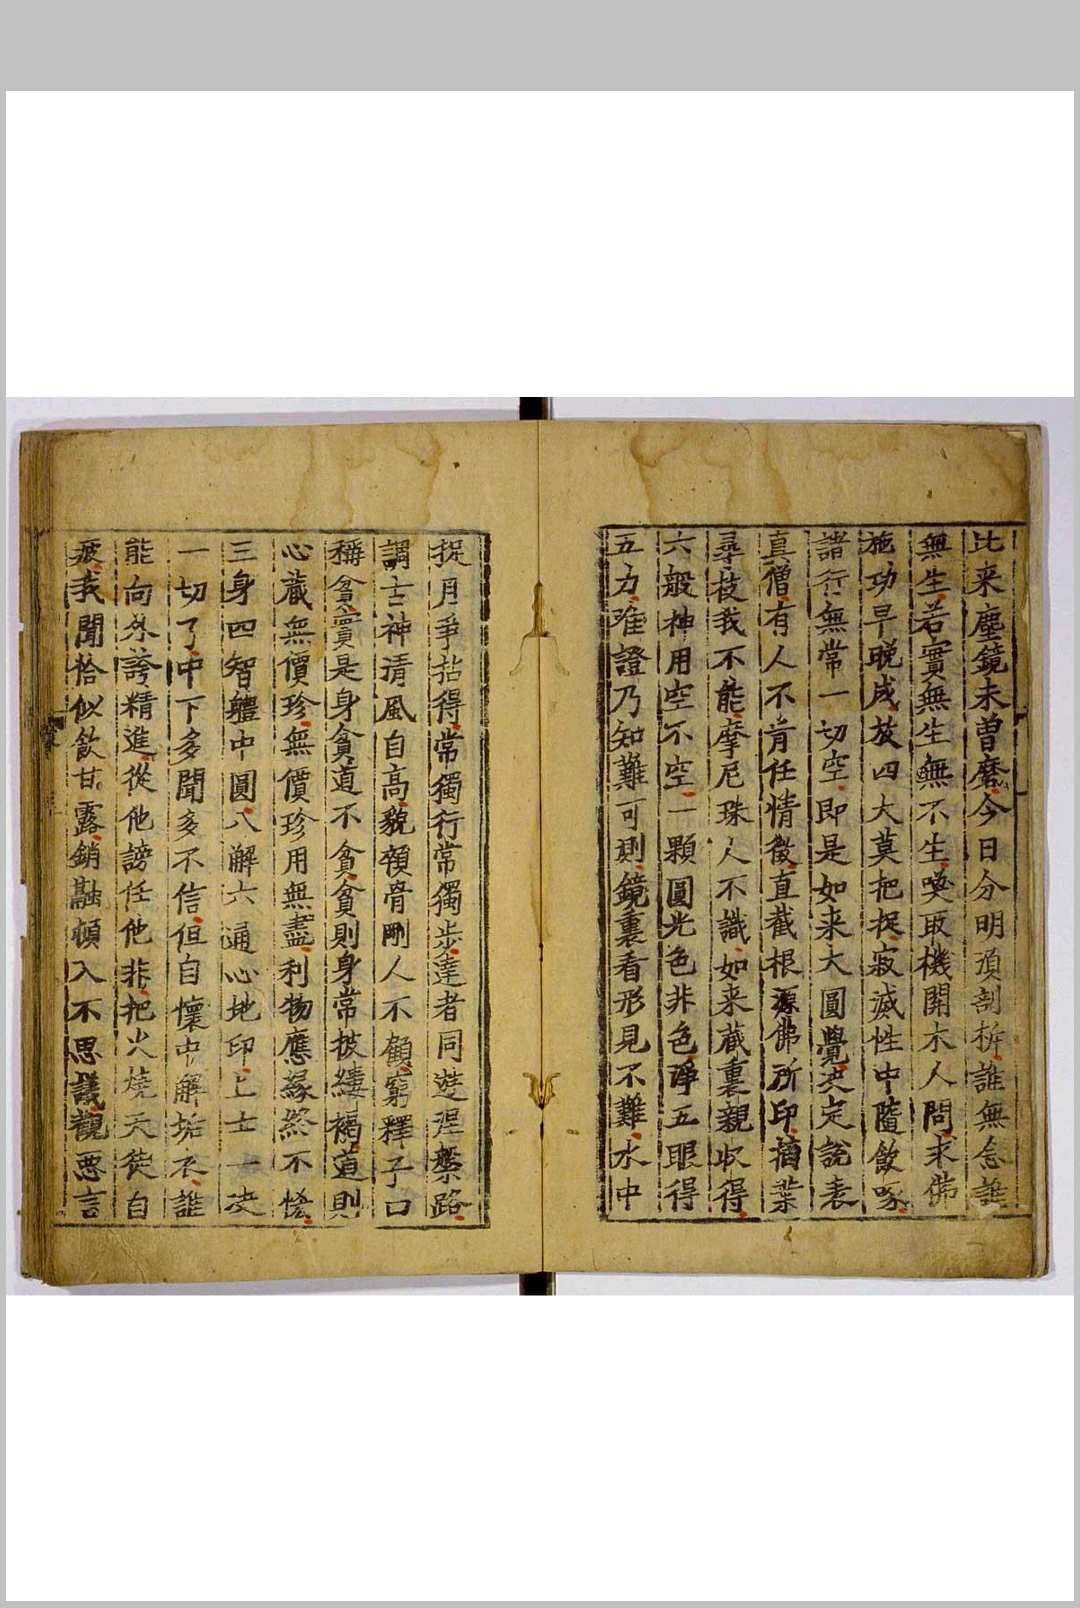 比来塵鏡未曽磨今日分明須剖析誰無念誰
無生若實無生無不生喚取機關木人問求佛
施功早晚成放四大莫把捉寂滅性中隨飲啄
諸行無常一切空即是如来大圓覺决定說表
真僧有人不肯任情徵直截根源佛所印摘葉
尋枝我不能摩尼珠人不識如来蔵裏親收得
六般神用空不空一顆圓光色非色淨五眼得
五力唯證乃知難可測鏡裏看形見不難水中
捉月爭拈得常獨行常獨步達者同遊涅槃路
調古神清風自高貌顇骨剛人不顧窮釋子口
稱貧實是身貧道不貧貧則身常披縷褐道則
心蔵無價珍無價珍用無盡利物應緣終不悋
三身四智體中圓八解六通心地印上士一决
一切了中下多聞多不信但自懷中解垢衣誰
能向外誇精進從他謗任他非把火燒天徒自
疲我聞恰似飲甘露銷融頓入不思議觀惡言